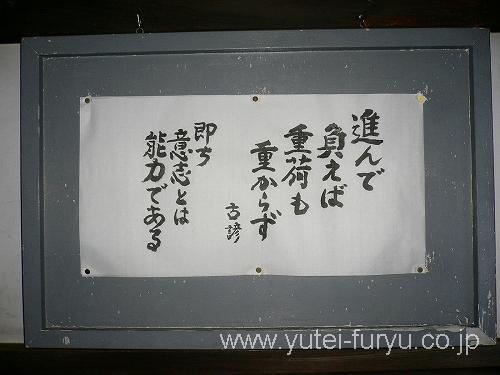 進んで
負えば
重荷も
重からず
古諺
即ち
意志とは
能力である
www.yutei-furyu.co.jp